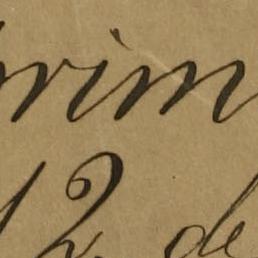 rim
12 de